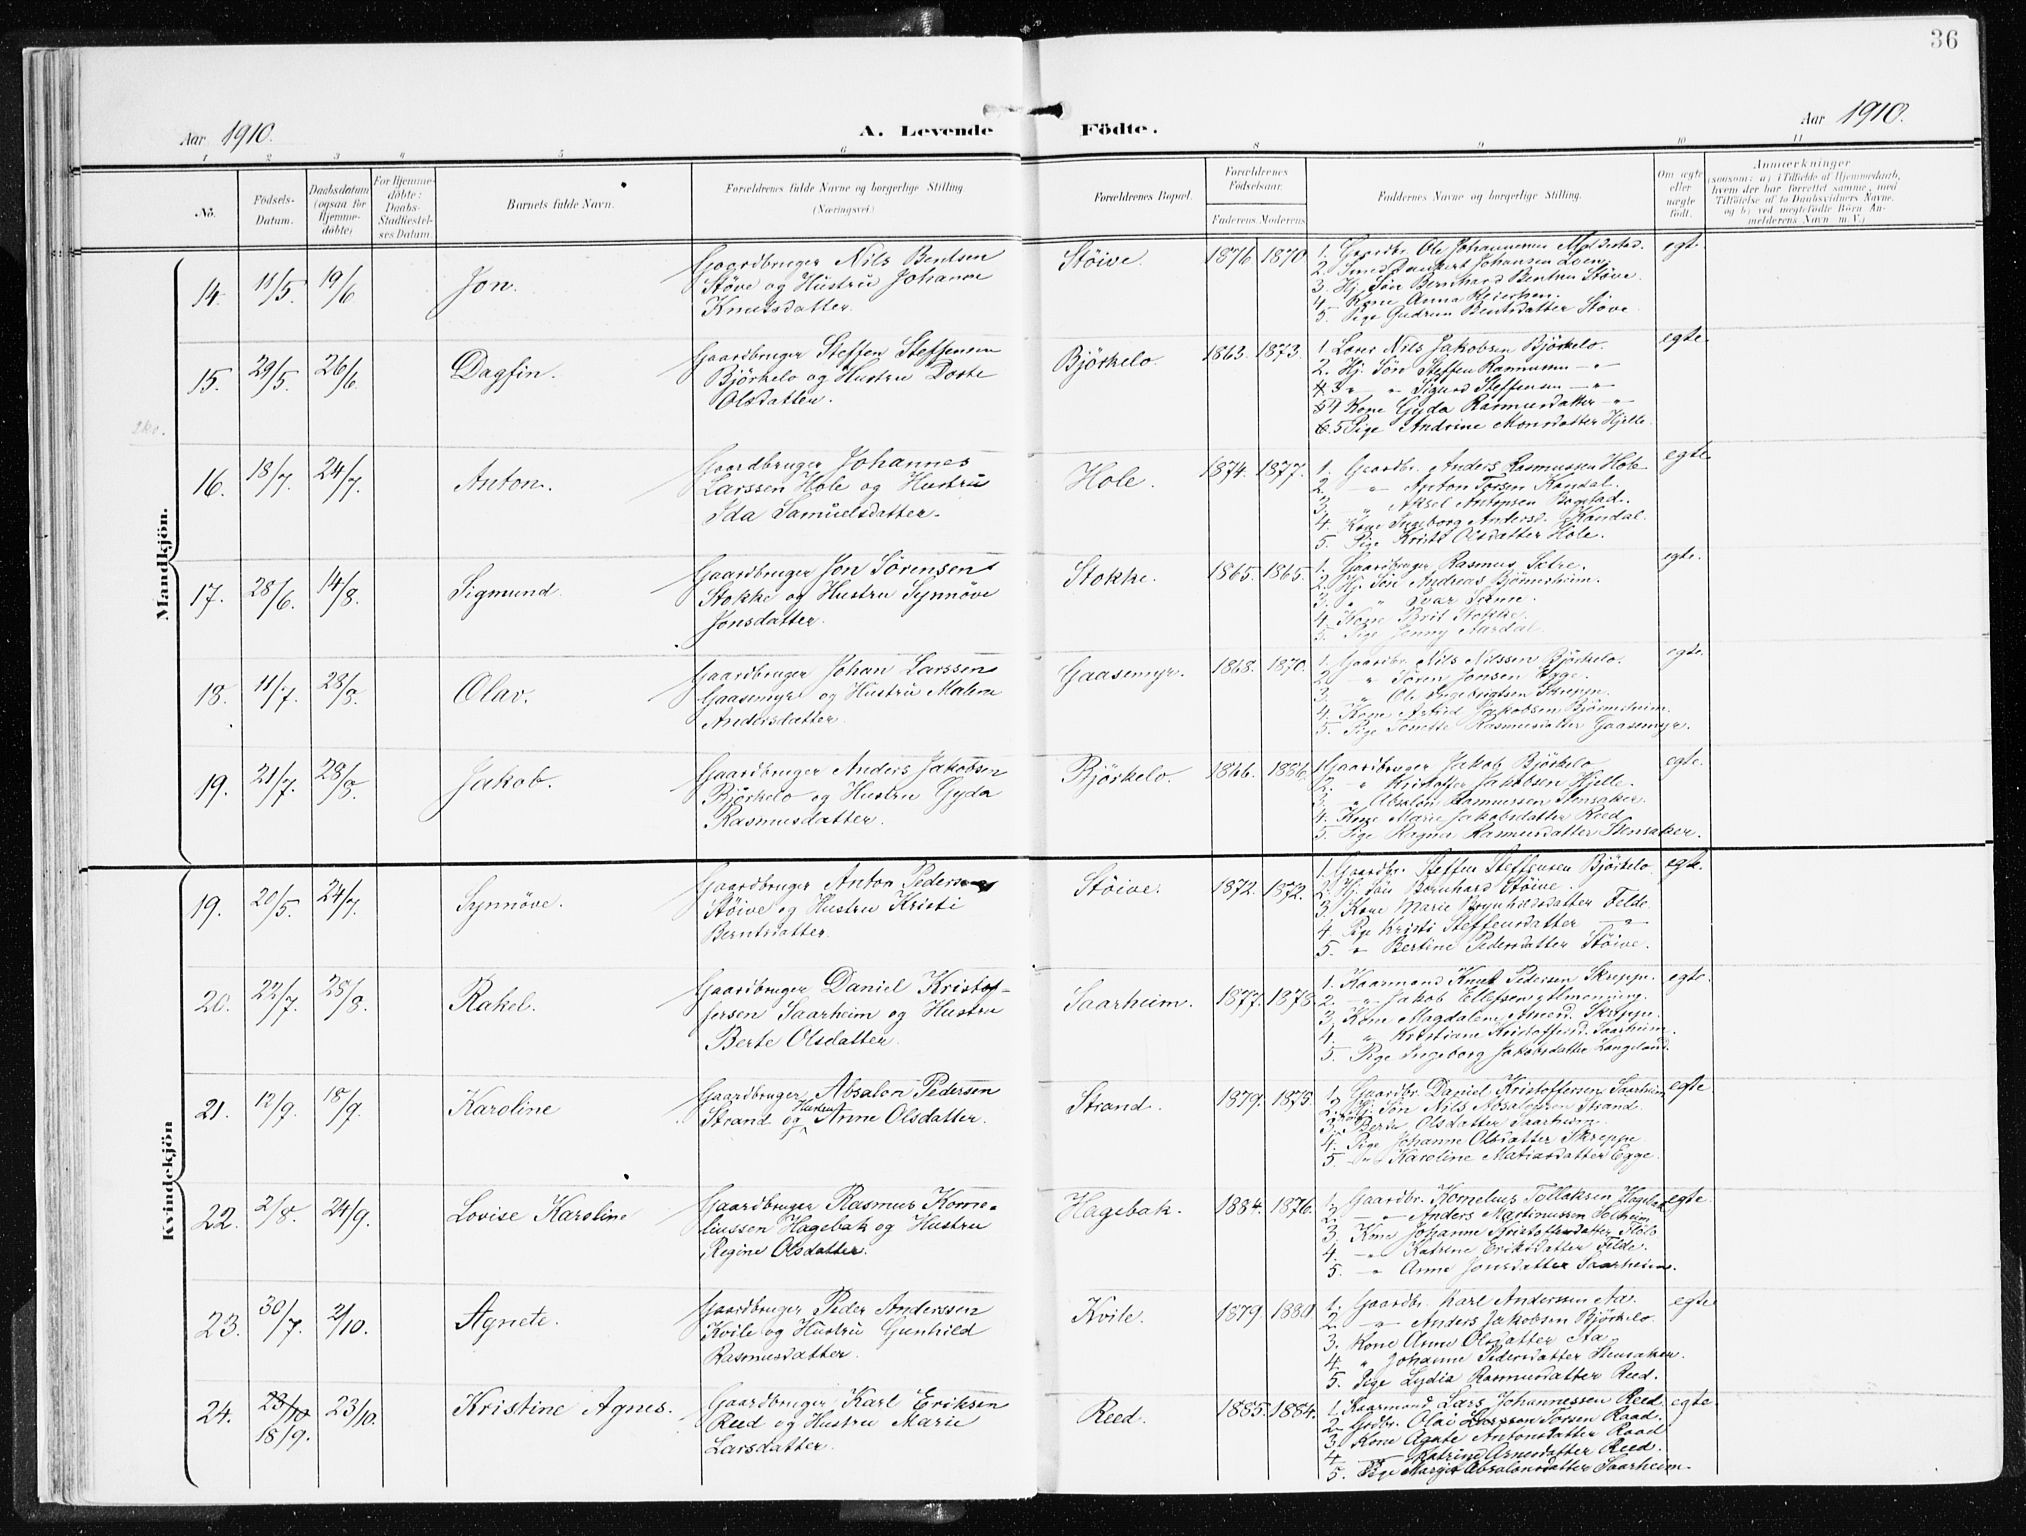 36
Aar 1910.
A. Levende
Födte.
Aar 1910.
1 2 3 4 5 6 8 9 10 11
No.
Födsels-
Datum.
Daabsdatum
(ogsaa for
Hjemme-
döbte)
For Hjemme-
döbte:
Daabs-
Stadfæstel-
ses Datum.
Barnets fulde Navn.
Forældrenes fulde Navne og borgerlige Stilling.
(Næringsvei)
Forældrenes Bopæl.
Forældrenes
Födselsaar.
Faderens. Moderens.
Faddernes Navne og borgerlige Stilling.
Om ægte
eller
uægte
födt.
Anmærkninger
(saasom: a) i Tilfælde af Hjemmedaab,
hvem der har forrettet samme, med
Tilföielse af to Daabsvidners Navne,
og b) ved uægtefödte Börn An-
melderens Navn m. V.)
Mandkjön.
14. 11/5. 19/6 Jon.
Gaardbruger Nils Bentsen
Støve og Hustru Johanne
Knutsdatter.
Støive. 1876 1870
1. Gaardbr. Ole Johannesen Moldestad
3. Hj. Søn Bernhard Bentsen Støve.
4. Kone Anna
5. Pige Gudrun Bentsdatter Støve.
egte.
15. 29/5. 26/6. Dagfin.
Gaardbruger Steffen Steffensen
Björkelo og Hustru Dorte
Olsdatter.
Björkelo. 1863. 1873.
1. Nils Jakobsen Björkelo.
2. Hj. Søn Steffen Rasmussen — " —
3 " " Sigurd Steffensen — " —
4 Kone Gyda Rasmusdatter — " —
5 Pige Andrine Monsdatter Hjelle.
egte.
16. 18/7. 24/7. Anton.
Gaardbruger Johannes
Larssen Hole og Hustru
Ida Samuelsdatter.
Hole. 1874. 1877.
1. Gaardbr. Anders Rasmussen Hole
2. — " — Anton Torsen Kandal.
3. " Aksel Antonsen Bogstad.
4. Kone Ingeborg Andersd. Kandal.
5. Pige Kristi Olsdatter Hole.
egte
17. 28/6. 14/8. Sigmund.
Gaardbruger Jon Sørensen
Stokke og Hustru Synnöve
Jonsdatter.
Stokke. 1865. 1865.
1. Gaardbruger Rasmus Setre.
2. Hj. Søn Andreas Björnsheim.
3. " " Ivar
4. Kone Brit Stokke.
5. Pige Jenny Aardal.
egte.
18. 11/7. 28/8. Olav.
Gaardbruger Johan Larssen
Gaasemyr og Hustru Malene
Andersdatter.
Gaasemyr. 1868. 1870.
1. Gaardbr. Nils Nilssen Björkelo.
2. " Sören Jonsen Egge.
3. " Ole Ingebrigtsen Skrepp.
4. Kone Astrid Jakobsen Björnsheim.
5. Pige Rasmusdatter Gaasemyr.
egte.
19. 21/7. 28/8. Jakob.
Gaardbruger Anders Jakobsen
Björkelo og Hustru Gyda
Rasmusdatter.
Björkelo. 1866. 1886.
1. Gaardbruger Jakob Björkelo
2. " Kristoffer Jakobsen Hjelle.
3. " Absalon Rasmussen
4. Kone Marie Jakobsdatter Reed
5. Pige Ragna Rasmusdatter
egte.
Kvindekjön
19. 20/5. 24/7. Synnöve.
Gaardbruger Anton Pedersen
Støive og Hustru Kristi
Berntsdatter.
Støive. 1872. 1872.
1. Gaardbr. Steffen Steffensen Björkelo
2. Hj. Søn Bernhard Støive.
3. Kone Marie Brynhildsdatter Felde.
4. Pige Kristi Steffensdatter — " —
5. " Bertine Pedersdatter Støive.
egte.
20. 22/7. 28/8. Rakel.
Gaardbruger Daniel Kristof-
fersen Saarheim og Hustru
Berte Olsdatter.
Saarheim. 1877. 1878.
1. Kaarmand Knut Pedersen Skrepp.
2. — " — Jakob Ellefsen
3. Kone Magdalene Skrepp.
4. " Kristiane Kristoffersd. Saarheim.
5. Pige Ingeborg Jakobsdatter Langeland.
egte.
21. 12/9. 18/9. Karoline
Gaardbruger Absalon Pedersen
Strand og Hustru Anne Olsdatter.
Strand. 1879. 1875.
1. Gaardbr. Daniel Kristoffersen Saarheim
2. Hj. Søn Nils Absalonsen Strand.
3. Kone Berte Olsdatter Saarheim.
4. Pige Johanne Olsdatter Skrepp.
5. " Karoline Matiasdatter Egge.
egte.
22. 2/8. 24/9. Lovise Karoline
Gaardbruger Rasmus Korne-
liussen Hagebak og Hustru
Regine Olsdatter.
Hagebak. 1884. 1876.
1. Gaardbr. Kornelius Tollaksen Hagebak
2. — " — Anders Martinussen Holheim
3. Kone Johanne Kristoffersdatter
4. — " — Katrine Eriksdatter Felde.
5. — " — Anne Jonsdatter Saarheim.
egte.
23. 30/7. 2/10. Agnete.
Gaardbruger Peder Anderssen
Kvile og Hustru Gunhild
Rasmusdatter.
Kvile. 1879. 1880
1. Gaardbr. Karl Anderssen Aa.
2. — " — Anders Jakobsen Björkelo.
3. Kone Anne Olsdatter Aa.
4. " Johanne Pedersdatter
5. Pige Lydia Rasmusdatter Reed.
egte
24. 23/10 18/9. 23/10. Kristine Agnes.
Gaardbruger Karl Eriksen
Reed og Hustru Marie
Larsdatter.
Reed. 1885. 1884.
1. Kaarmand Lars Johannessen Reed.
2. Gdbr. Olai Torsen Raad.
3. Kone Agate Antonsdatter Raad
4. — Katrine Arnesdatter Reed.
5. Pige Margit Absalonsdatter Saarheim.
egte.